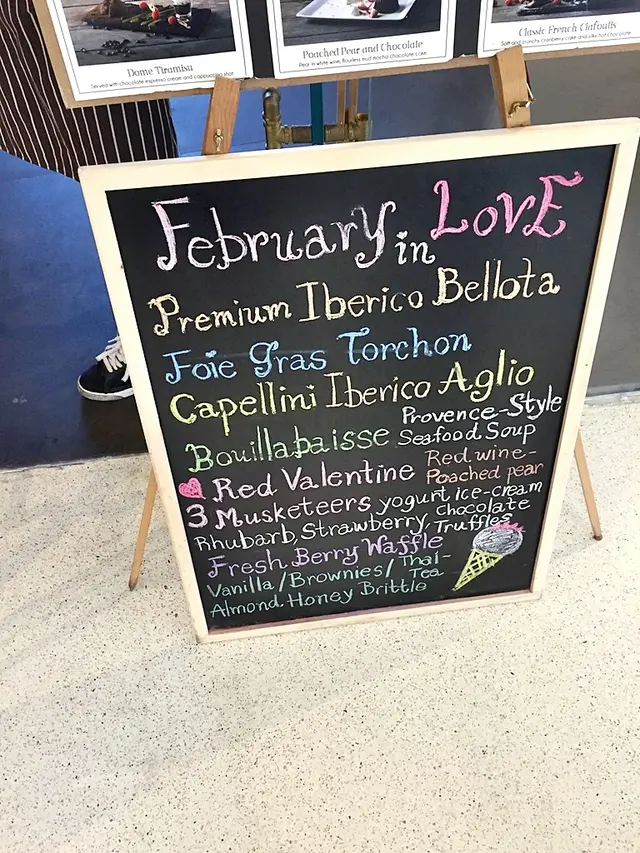 Dome Tiramisu
Served with chocolate espresso cream and cappuccino shot
Poached Pear and Chocolate
Pear in white wine, flourless mud mocha chocolate cake
Classic French Clafoutis
Soft and crunchy, cranberry cake and silky hot chocolate
February in LOVE
Premium Iberico Bellota
Foie gras Torchon
Capellini Iberico Aglio
Bouillabaisse Provence-Style
Seafood Soup
Red Valentine Red wine-
Poached pear
3 Musketeers yogurt ice-cream
Rhubarb, Strawberry, Chocolate
Truffles
Fresh Berry Waffle
Vanilla/Brownies/Thai-
Tea
Almond Honey Brittle